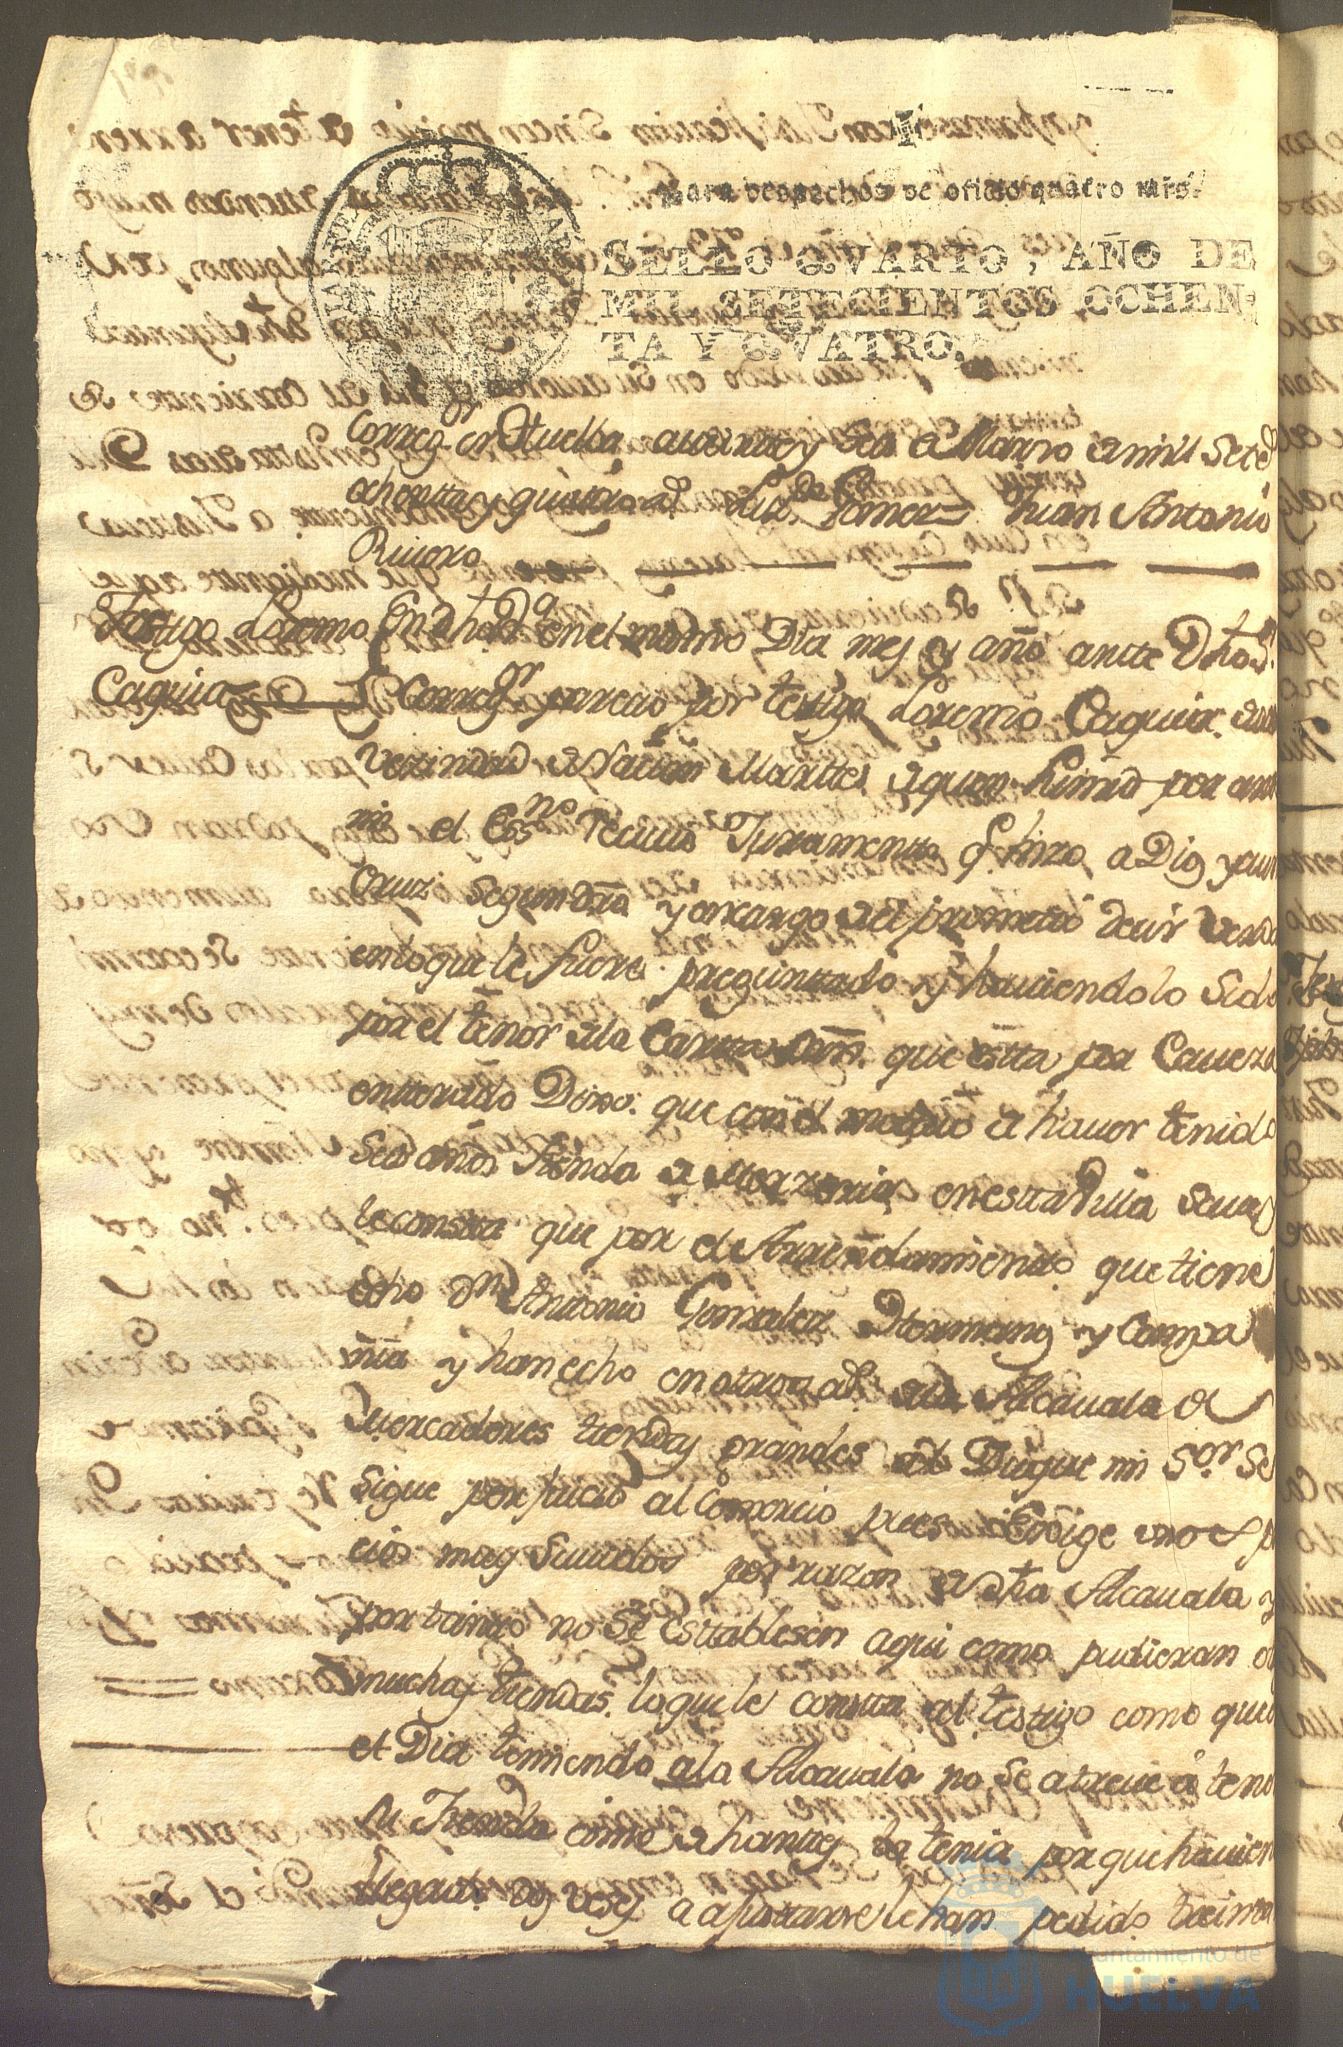 Para despachos de oficio quatro mrs.
SELLO QVARTO, AÑO DE
MIL SETECIENTOS OCHEN-
TA Y QVATRO.
Correg.or en Huelba a veinte y seis de Marzo de mill setec.s
ochenta y quattro Lizd.o Gomez Juan Antonio
Riuero
Testigo Lorenzo En dha V.a en el mismo Dia mes y año antte Dho S.r
Caguia Correg.or parecio por testigo Lorenzo Caguia
Vezindad de Martter de quien su mrd por antte
mi el Ess.no reciuio Juramento q.e hizo a Dios y a una
Cruz segun dro y en cargo del prometió decir verdad
en lo que le fuere preguntado y hauiendolo sido
por el tenor de la que estta por Caueza
entterado Dixo: que con el motiuo de hauer tenido
seis años tienda de Merzeria en esta Villa saue y
le consta que por el Arrendamiento que tiene
echo D.n Antonio Gonzalez Hermano y Compa
ñia y han echo de la Alcauala de
Mercaderes tiendas grandes del Duque mi S.or se
sigue perjuicio al Comercio pues Exige uno
cios muy suuidos por razon de dha Alcauala y
por tanto no se establesen aqui como pudieran
muchas tiendas lo que le consta al testigo como que
el Dia temiendo a la Alcauala no se atreue á tener
su Tienda como de hantes la tenia porque hauien
llegado dos veses a ajustarse le han pedido treinta
Ayuntamiento de
HUELVA